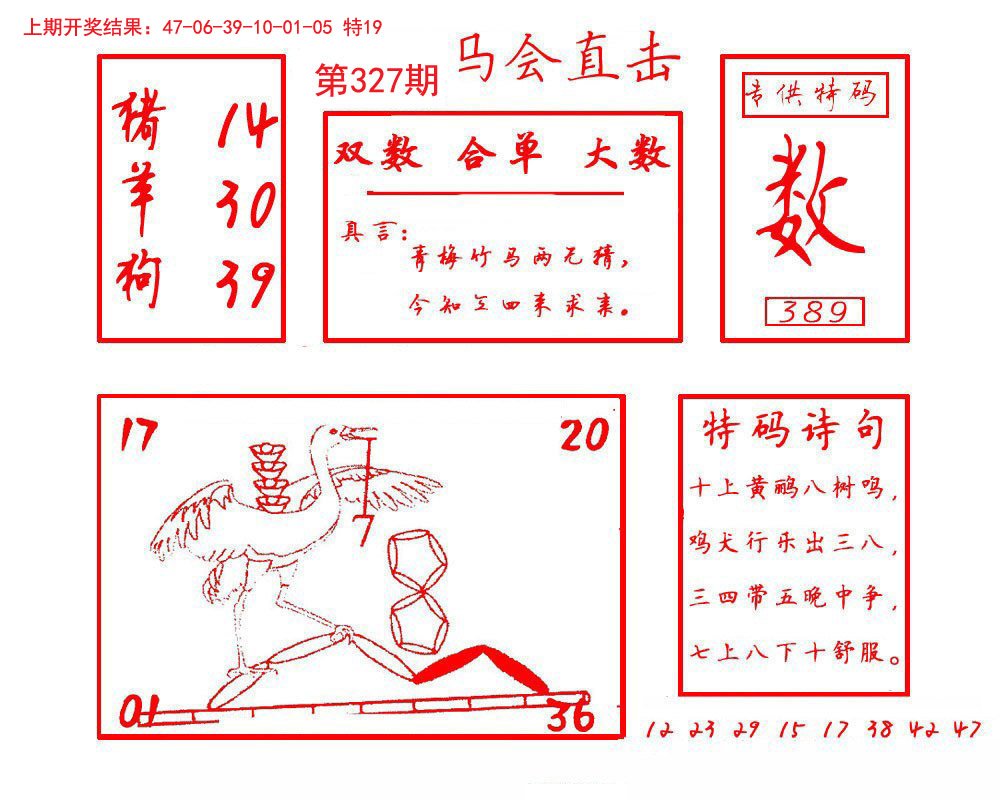 上期开奖结果：47-06-39-10-01-05 特19
第327期 马会直击
猪 14
羊 30
狗 39
双数 合单 大数
真言：
青梅竹马两无猜，
今知三四来求亲。
专供特码
数
389
17
20
7
01
36
特码诗句
十上黄鹂八树鸣，
鸡犬行乐出三八，
三四带五晚中争，
七上八下十舒服。
12 23 29 15 17 38 42 47